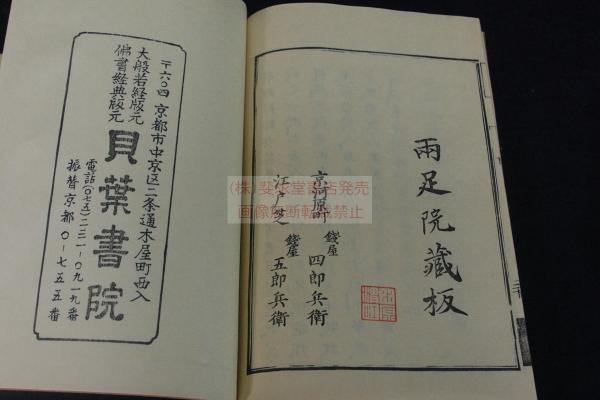 兩足院藏板
京河原町 錢屋 四郎兵衛
江戸芝 錢屋 五郎兵衛
〒六〇四 京都市中京区二条通木屋町西入
大般若経版元
佛書経典版元
貝葉書院
電話(〇七五)二三一-〇九一九番
振替京都〇-七五五番
(株)斐水堂書店発売
画像無断転載禁止